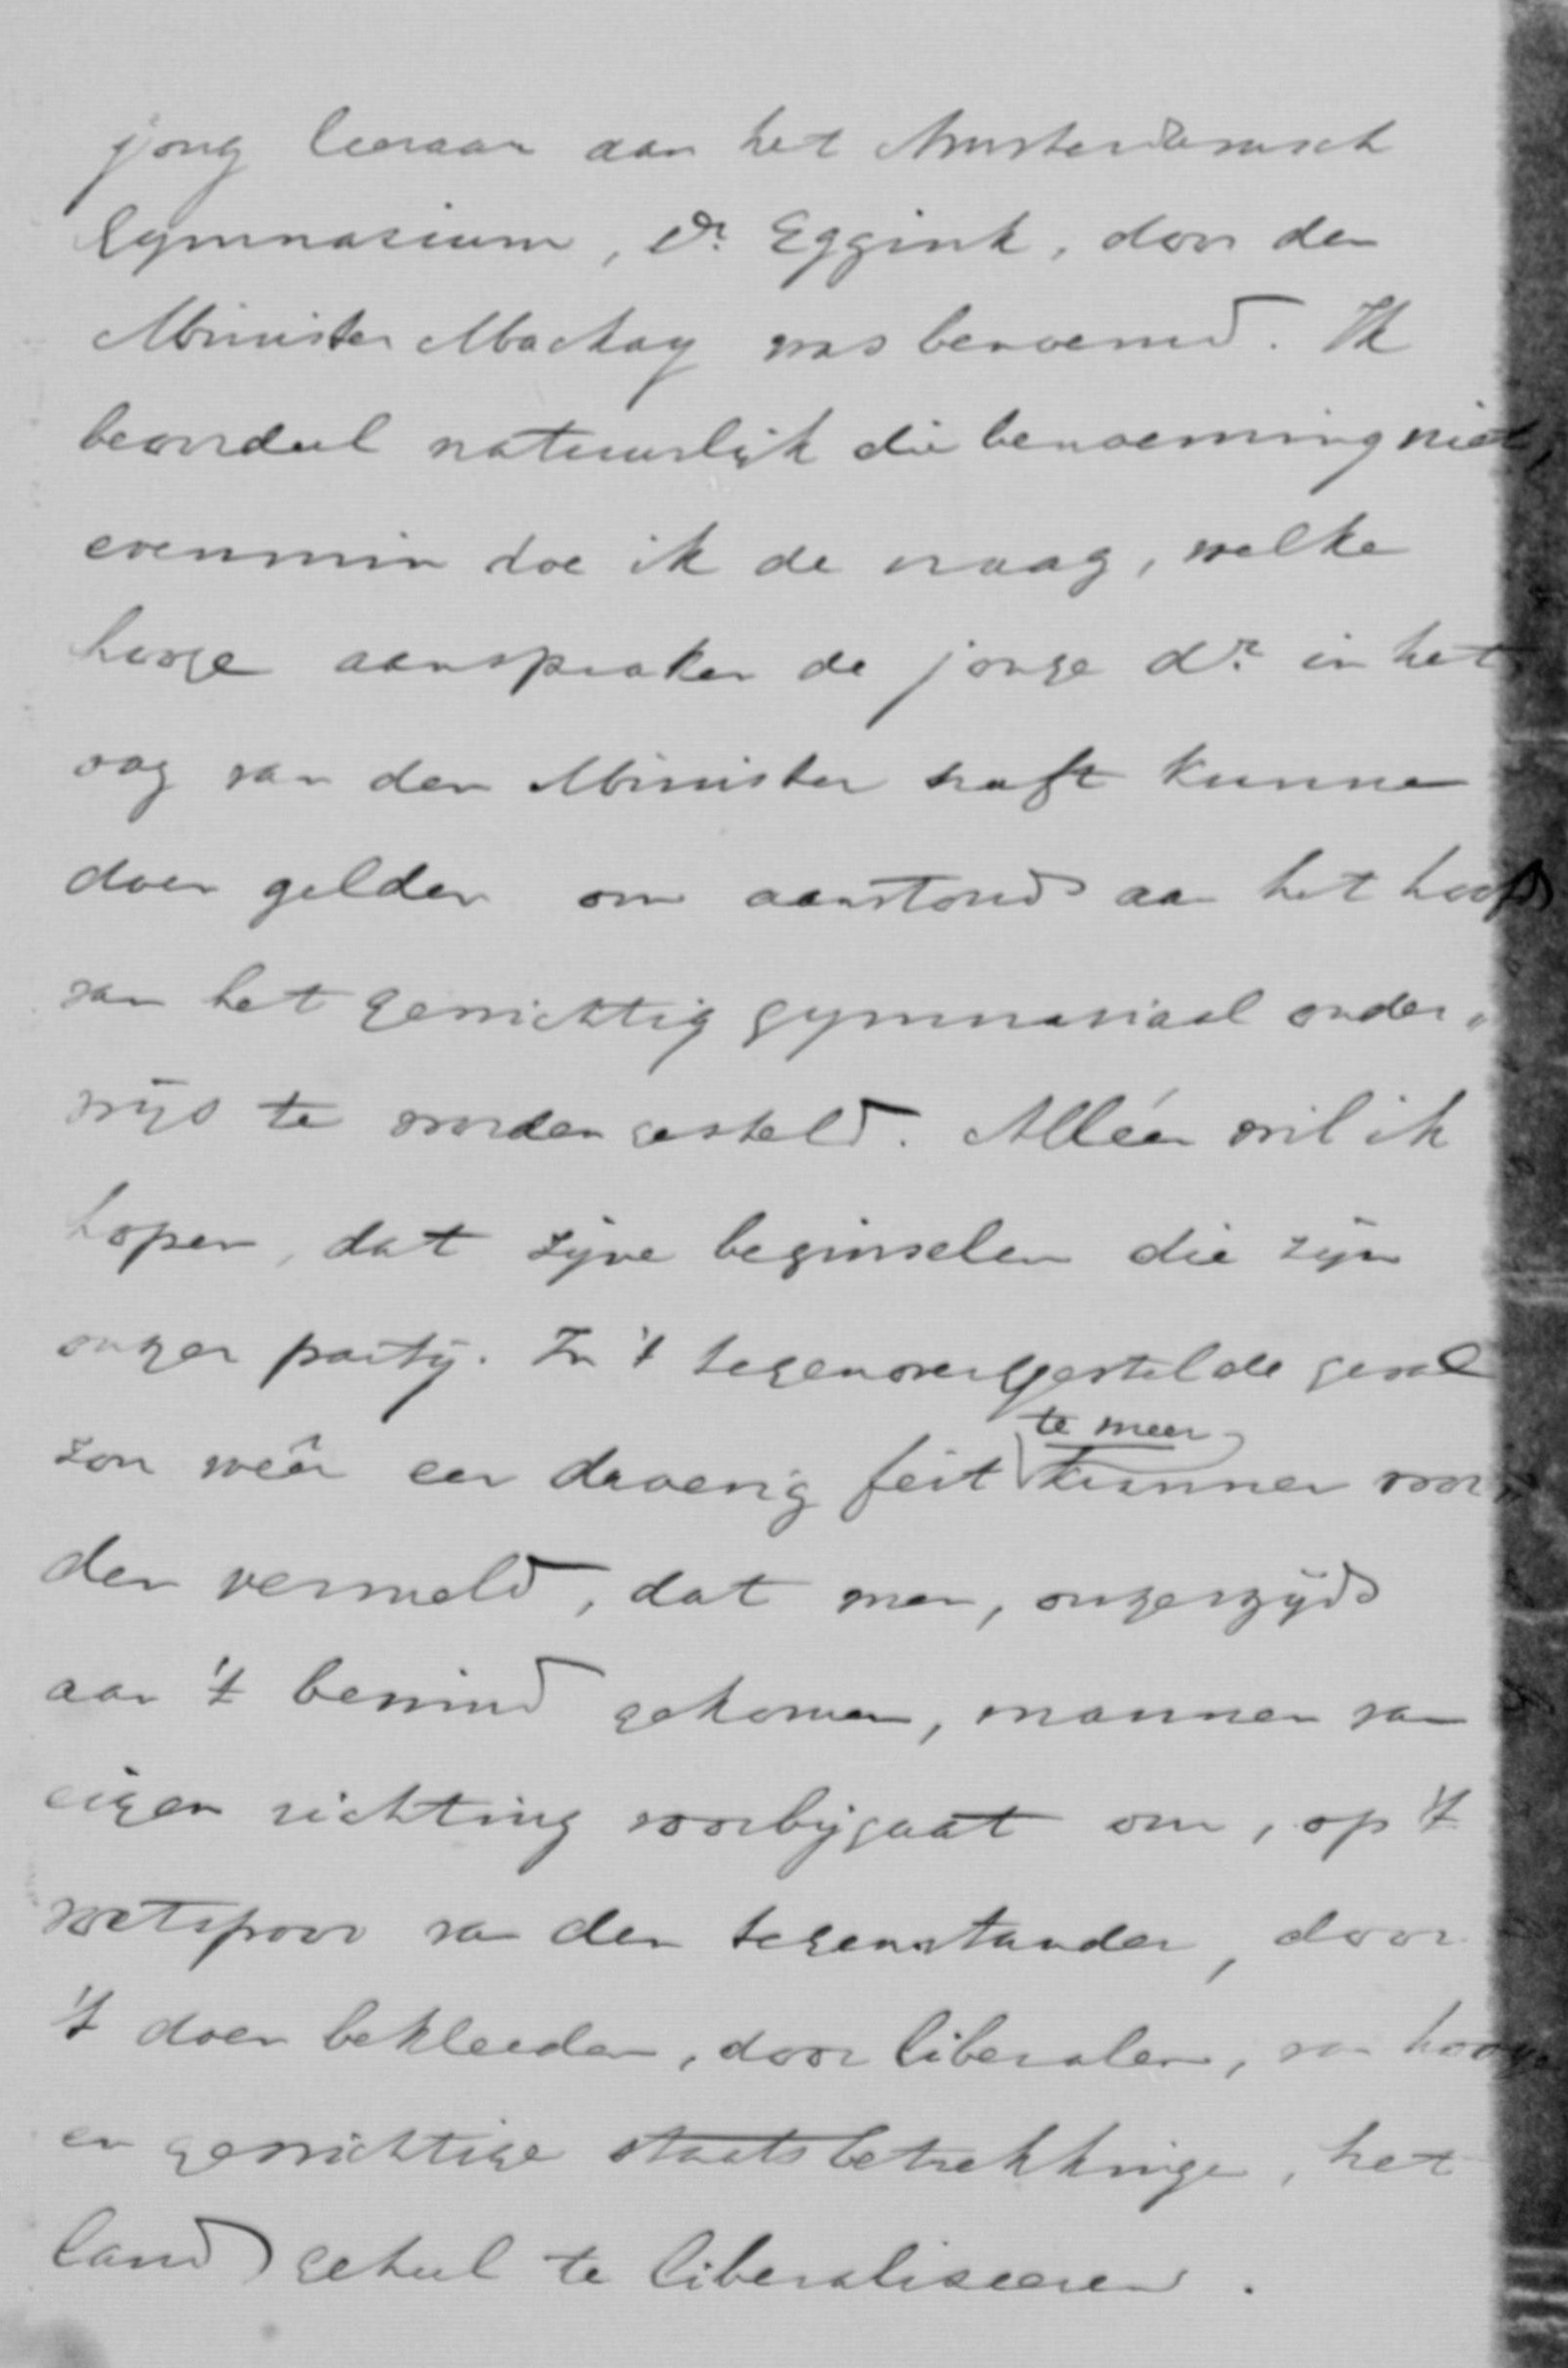 jong leeraar aan het Amsterdamsch
Gymnasium, Dr. Eggink, door den
Minister Mackay was benoemd. Ik
beoordeel natuurlijk die benoeming niet,
evenmin doe ik de vraag, welke
hooge aanspraken de jonge dr. in het
oog van den Minister heeft kunnen
doen gelden om aanstonds aan het hoofd
van het gewichtig gymnasiaal onder„
wijs te worden gesteld. Alléén wil ik
hopen, dat zijne beginselen die zijn
onzer partij. In 't tegenovergestelde geval
te meer
zou weêr een droevig feit kunnen wor„
den vermeld, dat men, onzerzijds
aan 't bewind gekomen, mannen van
eigen richting voorbijgaat om, op 't
voetspoor van den tegenstander, door
't doen bekleeden, door liberalen, van hooge
en gewichtige staatsbetrekkingen, het
land geheel te liberaliseeren.